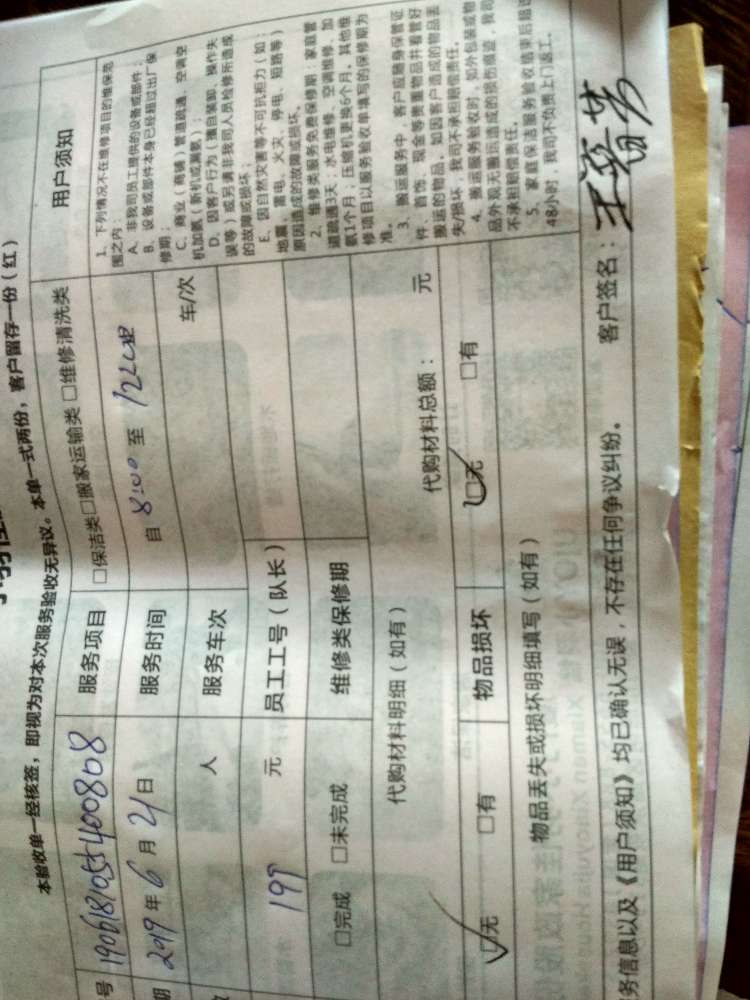 本验收单一经核签，即视为对本次服务验收无异议。本单一式两份，客户留存一份（红）
号 1906181055400808 服务项目 □保洁类□搬家运输类 □维修清洗类
期 2019年6月21日 服务时间 自 8:00 至 12:00
人 服务车次 车/次
197 元 员工工号（队长）
□完成 □未完成 维修类保修期
代购材料明细（如有） 代购材料总额： 元
☑无 □有 物品损坏 ☑无 □有
物品丢失或损坏明细填写（如有）
用户须知
1、下列情况不在维修项目的维保范
围之内：
A、非我司员工提供的设备或部件；
B、设备或部件本身已经超过出厂保
修期；
C、商业（商铺）管道疏通、空调空
机加氟（新机或漏氟）；
D、因客户行为（擅自装卸、操作失
误等）或另请非我司人员检修所造成
的故障或损坏；
E、因自然灾害等不可抗拒力（如：
地震、雷电、火灾、停电、短路等）
原因造成的故障或损坏。
2、维修类服务免费保修期：家庭管
道疏通3天；水电维修、空调维修、加
氟1个月；压缩机更换6个月。其他维
修项目以服务验收单填写的保修期为
准。
3、搬运服务中，客户应随身保管证
件、首饰、现金等贵重物品并看管好
搬运的物品。如因客户造成的物品丢
失/损坏，我司不承担赔偿责任。
4、搬运服务验收时，如外包装或物
品外观无搬运造成的损伤痕迹，我司
不承担赔偿责任。
5、家庭保洁服务验收结束后超过
48小时，我司不负责上门返工。
务信息以及《用户须知》均已确认无误，不存在任何争议纠纷。 客户签名：